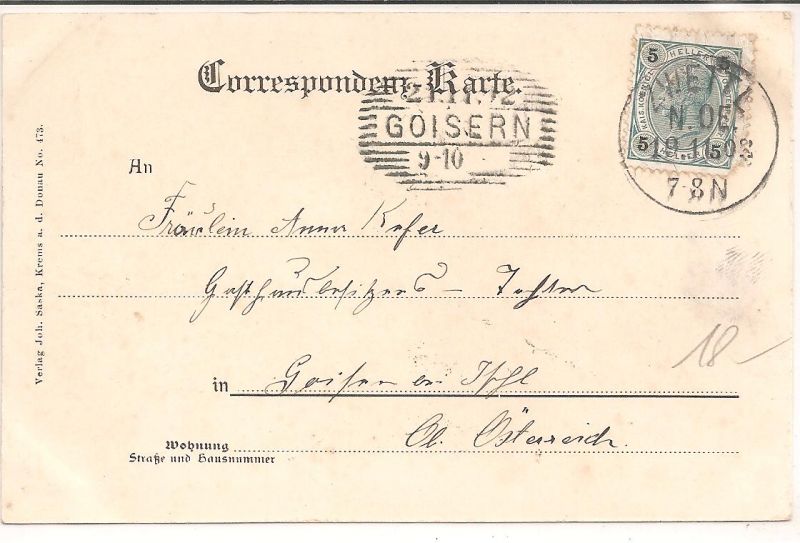 Correspondenz-Karte.
5 HELLER 5
5 5
ZWETTL
N.Ö.
7-8N
21.11.02
GOISERN
9-10
An
Fräulein Anna Kefer
Gasthausbesitzers - Tochter
in Goisern bei Ischl
Ob. Österreich.
18-
Wohnung
Straße und Hausnummer
Verlag Joh. Saska, Krems a. d. Donau No. 473.